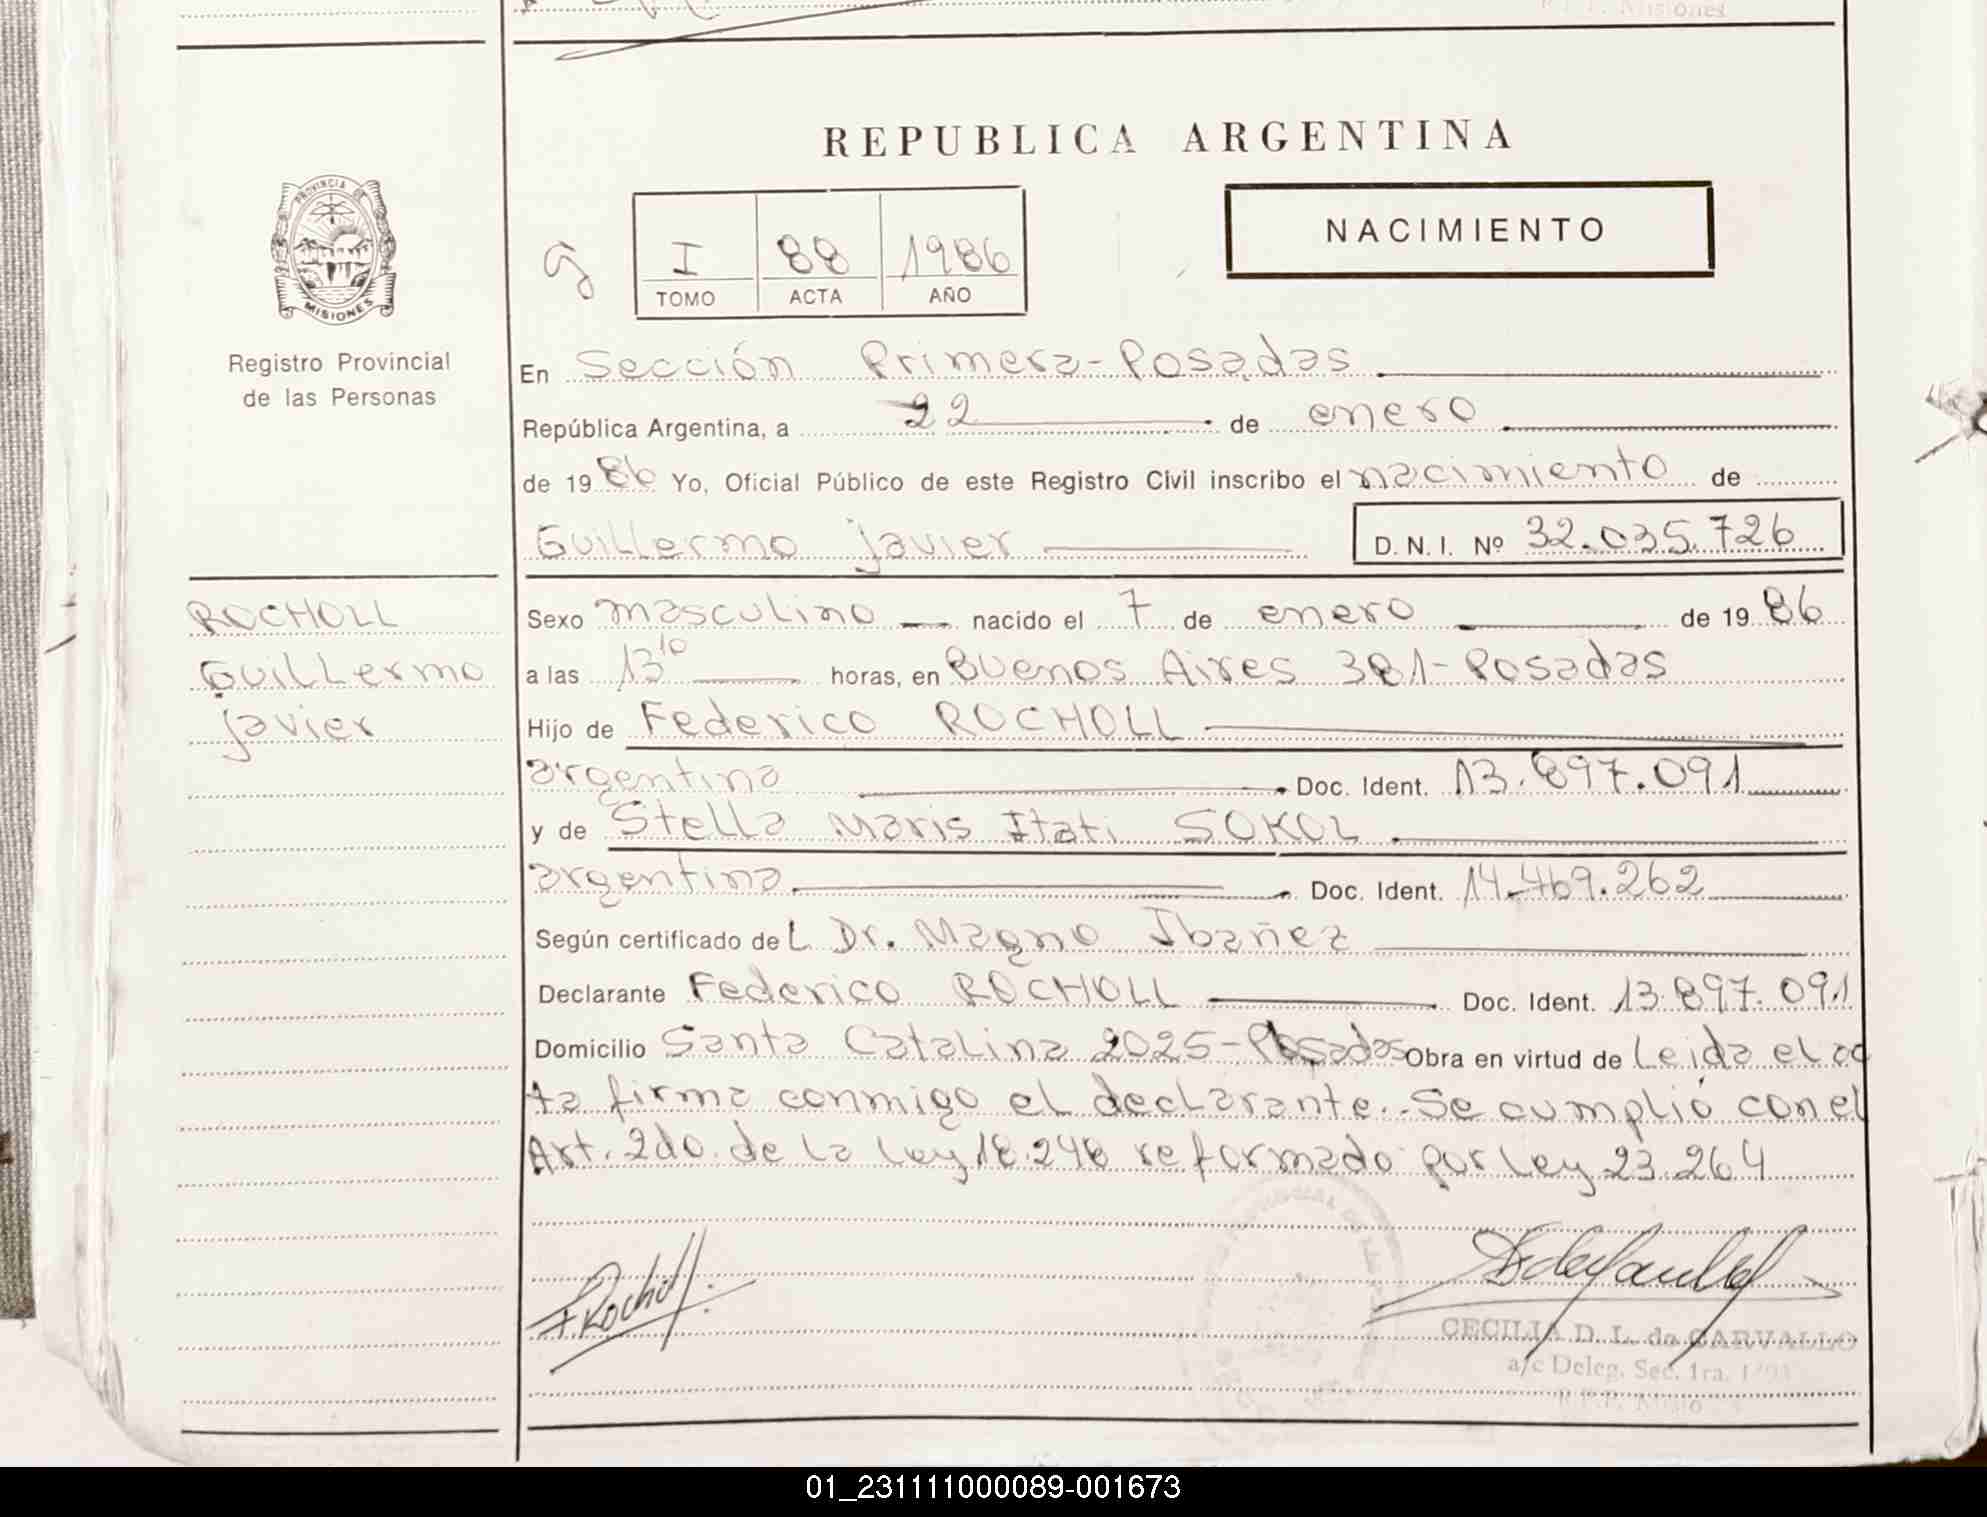 REPUBLICA ARGENTINA
PROVINCIA DE
MISIONES
Registro Provincial
de las Personas
I 88 1986
TOMO ACTA AÑO
NACIMIENTO
En Sección Primera-Posadas
República Argentina, a 22 de enero
de 1986 Yo, Oficial Público de este Registro Civil inscribo el nacimiento de
Guillermo Javier D.N.I. Nº 32.035.726
ROCHOLL
Guillermo
Javier
Sexo masculino nacido el 7 de enero de 1986
a las 13 10 horas, en Buenos Aires 381-Posadas
Hijo de Federico ROCHOLL
argentina Doc. Ident. 13.897.091
y de Stella Maris Itati SOKOL
argentina Doc. Ident. 14.469.262
Según certificado del Dr. Magno Ibañez
Declarante Federico ROCHOLL Doc. Ident. 13.897.091
Domicilio Santa Catalina 2025-Posadas Obra en virtud de Leida el ac
ta firma conmigo el declarante. Se cumplió con el
Art. 2do. de la Ley 18.248 reformado por Ley 23.264
F. Rocholl
CECILIA D. L. de CARVALLO
a/c Deleg. Sec. 1ra.
01_231111000089-001673